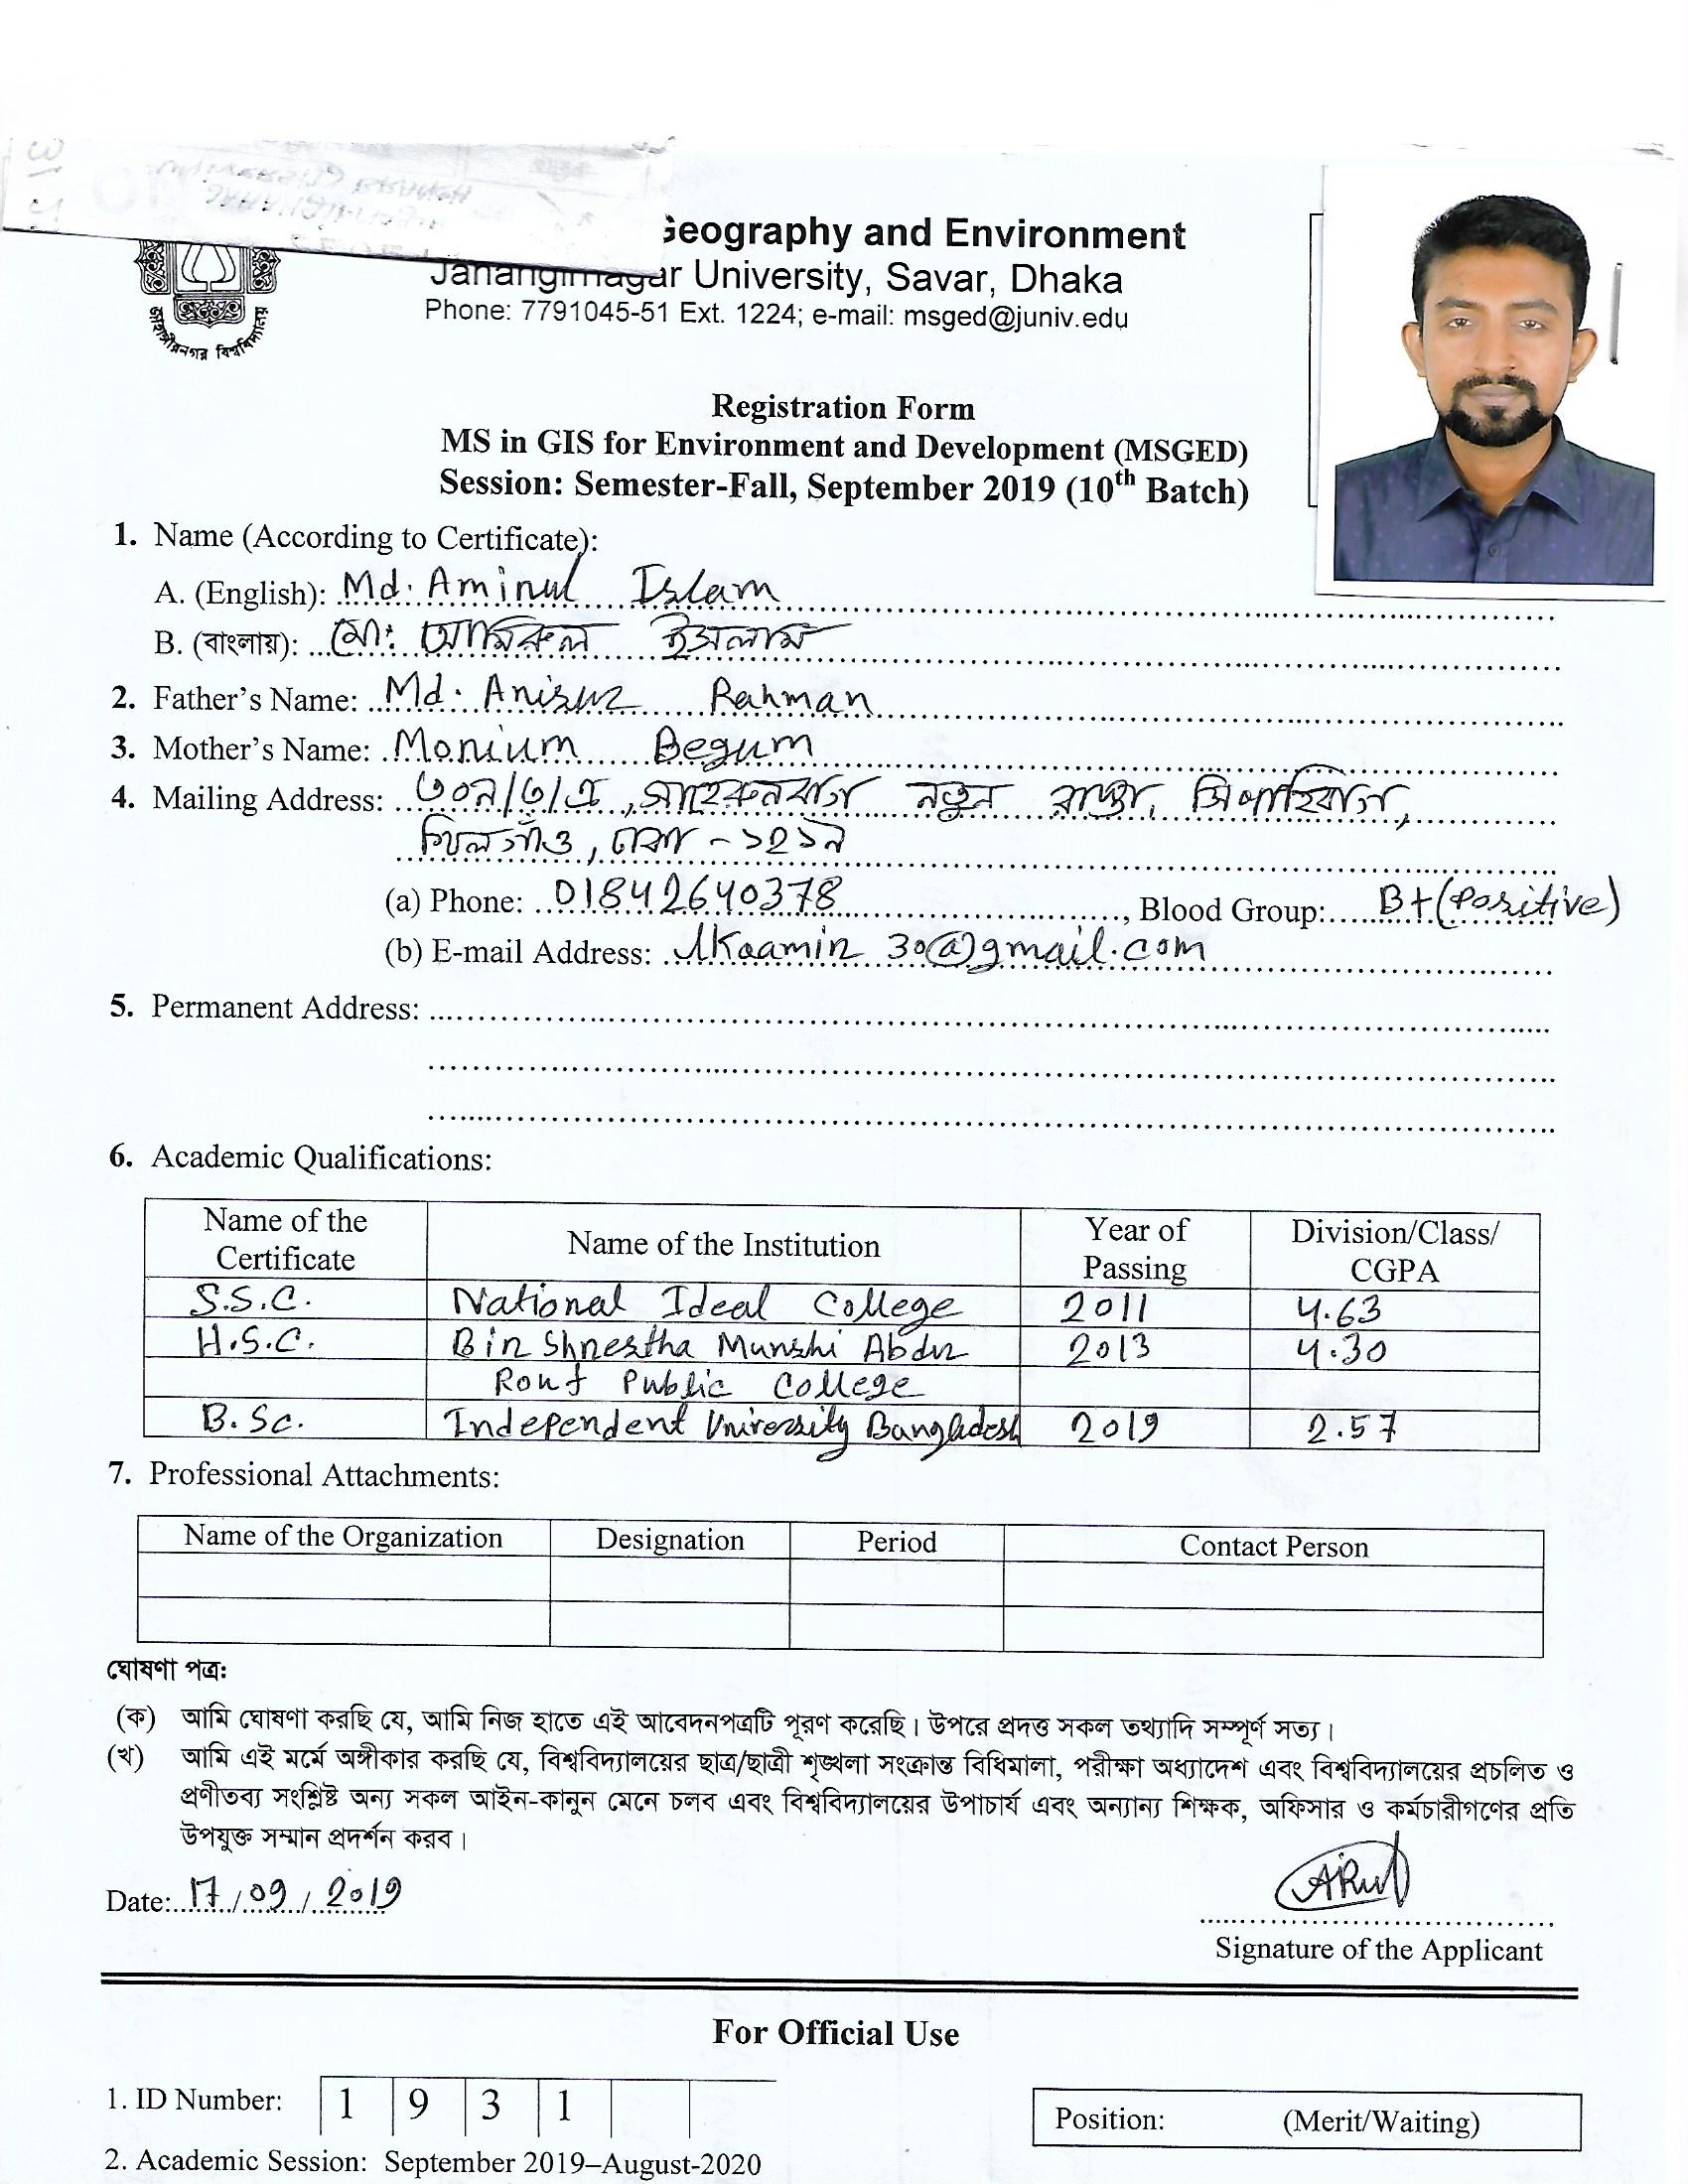 Geography and Environment
Jahangirnagar University, Savar, Dhaka
Phone: 7791045-51 Ext. 1224; e-mail: msged@juniv.edu
জাহাঙ্গীরনগর বিশ্ববিদ্যালয়
Registration Form
MS in GIS for Environment and Development (MSGED)
Session: Semester-Fall, September 2019 (10th Batch)
1. Name (According to Certificate):
A. (English): Md. Aminul Islam
B. (বাংলায়): মো: আমিনুল ইসলাম
2. Father's Name: Md. Anisur Rahman
3. Mother's Name: Monium Begum
4. Mailing Address: ৩০৯/৩/এ, নতুন রাস্তা, সিপাহিবাগ,
খিলগাঁও, ঢাকা - ১২১৯
(a) Phone: 01842640378, Blood Group: B+(Positive)
(b) E-mail Address: 30@gmail.com
5. Permanent Address:
6. Academic Qualifications:
Name of the Certificate Name of the Institution Year of Passing Division/Class/CGPA
S.S.C. National Ideal College 2011 4.63
H.S.C. Bir Shrestha Munshi Abdur 2013 4.30
Rouf Public College
B.Sc. Independent University Bangladesh 2019 2.57
7. Professional Attachments:
Name of the Organization Designation Period Contact Person
ঘোষণা পত্র:
(ক) আমি ঘোষণা করছি যে, আমি নিজ হাতে এই আবেদনপত্রটি পূরণ করেছি। উপরে প্রদত্ত সকল তথ্যাদি সম্পূর্ণ সত্য।
(খ) আমি এই মর্মে অঙ্গীকার করছি যে, বিশ্ববিদ্যালয়ের ছাত্র/ছাত্রী শৃঙ্খলা সংক্রান্ত বিধিমালা, পরীক্ষা অধ্যাদেশ এবং বিশ্ববিদ্যালয়ের প্রচলিত ও
প্রণীতব্য সংশ্লিষ্ট অন্য সকল আইন-কানুন মেনে চলব এবং বিশ্ববিদ্যালয়ের উপাচার্য এবং অন্যান্য শিক্ষক, অফিসার ও কর্মচারীগণের প্রতি
উপযুক্ত সম্মান প্রদর্শন করব।
Date: 17/09/2019
Signature of the Applicant
For Official Use
1. ID Number: 1 9 3 1
Position: (Merit/Waiting)
2. Academic Session: September 2019–August-2020